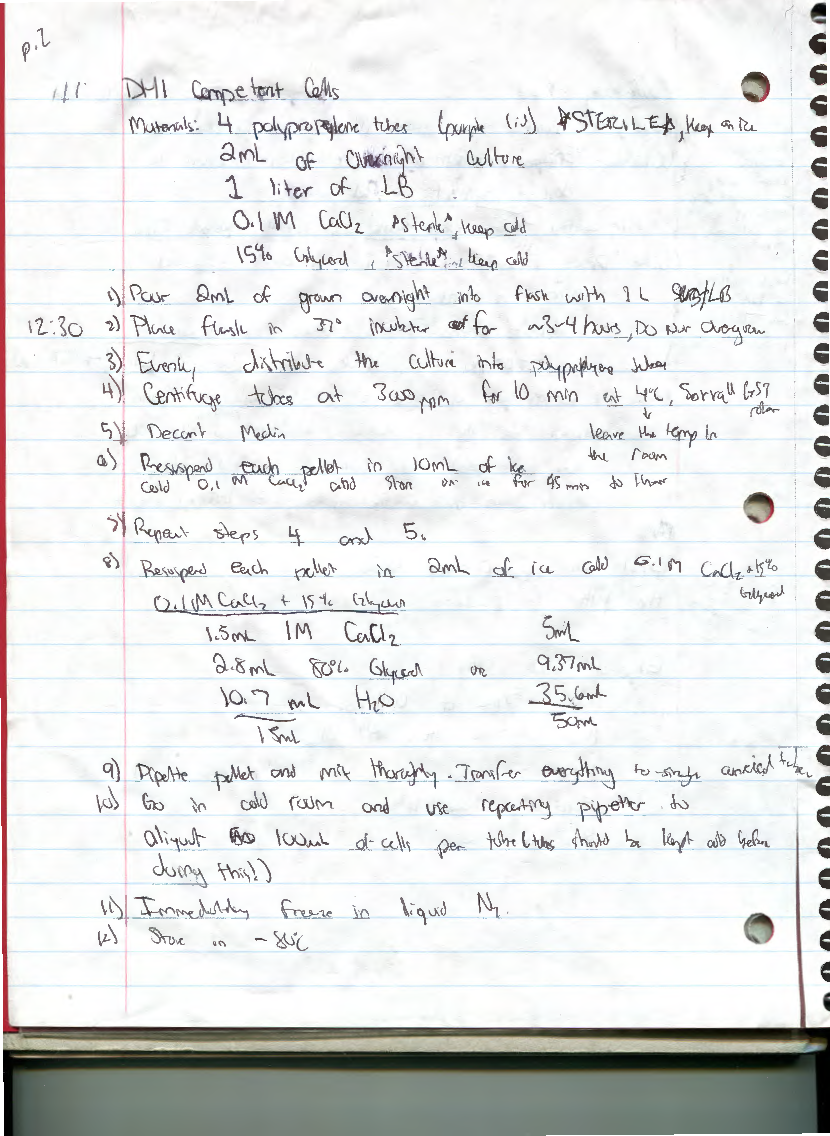 p.2
DH1 Competent Cells
Materials: 4 polypropylene tubes (purple lid) *STERILE*, keep on ice
2mL of overnight culture
1 liter of LB
0.1 M CaCl2 *sterile*, keep cold
15% Glycerol, *sterile*, keep cold
1) Pour 2mL of grown overnight into flask with 1 L LB
12:30 2) Place flask in 37° incubator for ~3-4 hours, Do Not Overgrow
3) Evenly distribute the culture into polypropylene tubes
4) Centrifuge tubes at 3000 rpm for 10 min at 4°C, Sorvall GS3 rotor
↓
5) Decant Media leave the temp in
the room
6) Resuspend each pellet in 10mL of ice
cold 0.1 M CaCl2 and store on ice for 45 min to 1 hour
7) Repeat steps 4 and 5.
8) Resuspend each pellet in 2mL of ice cold 0.1M CaCl2 + 15%
Glycerol
0.1M CaCl2 + 15% Glycerol
1.5mL 1M CaCl2 5mL
2.8mL 80% Glycerol or 9.37mL
10.7 mL H2O 35.6mL
15mL 50mL
9) Pipette pellet and mix thoroughly. Transfer everything to single tube
10) Go in cold room and use repeating pipetter to
aliquot 100uL of cells per tube (tubes should be kept cold before
during this!)
11) Immediately freeze in liquid N2.
12) Store in -80°C